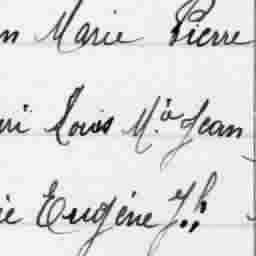 n Marie Pierre
ri Louis M.ª Jean
ie Eugène J.h